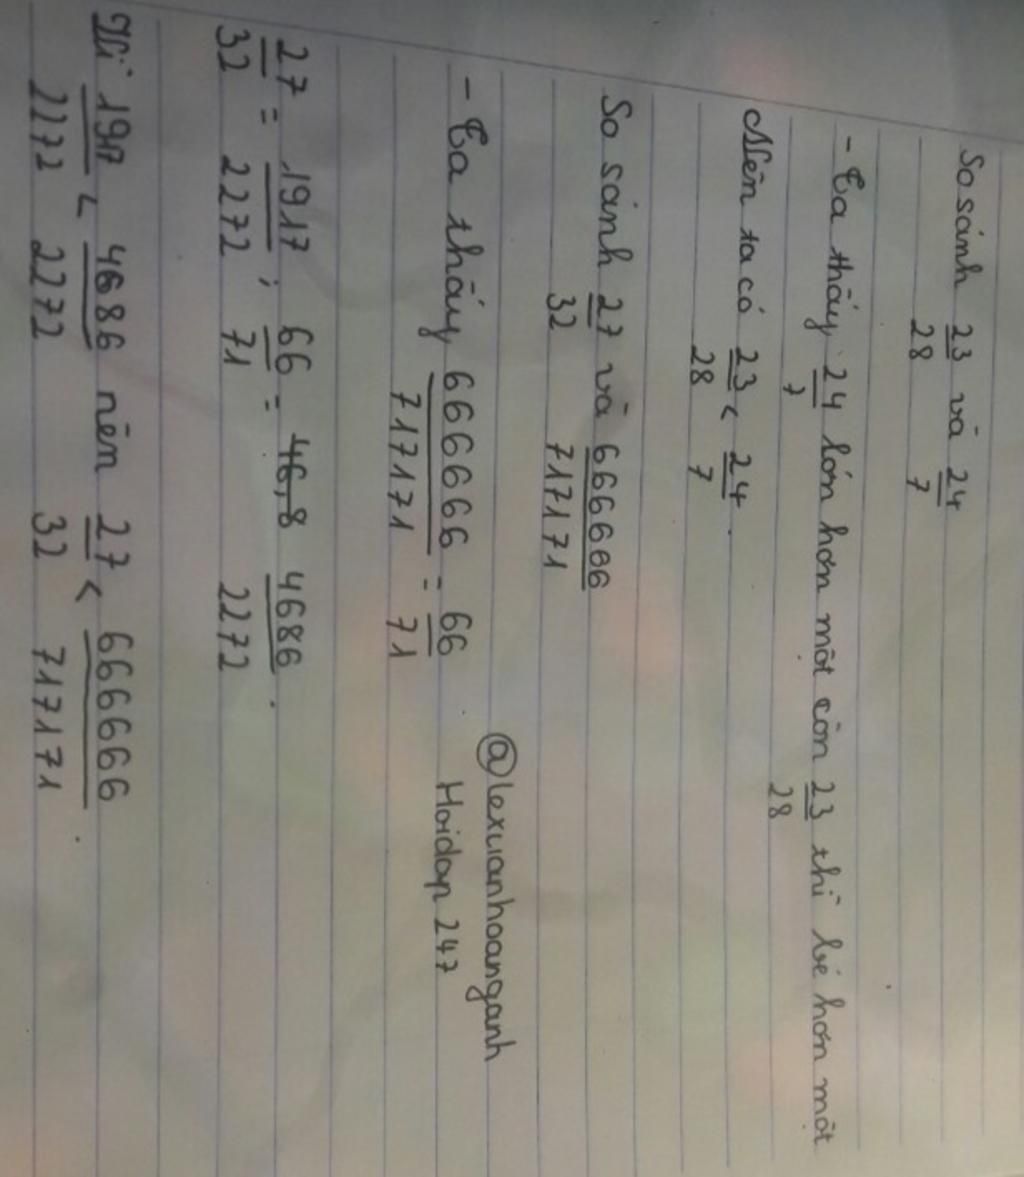 So sánh 23/28 và 24/7
- Ta thấy 24/7 lớn hơn một còn 23/28 thì bé hơn một
Nên ta có 23/28 < 24/7.
So sánh 27/32 và 666666/717171
@lexuanhoanganh
- Ta thấy 666666/717171 = 66/71
Hoidap 247
27/32 = 1917/2272 ; 66/71 = 46,8 4686/2272.
Vì 1917/2272 < 4686/2272 nên 27/32 < 666666/717171.